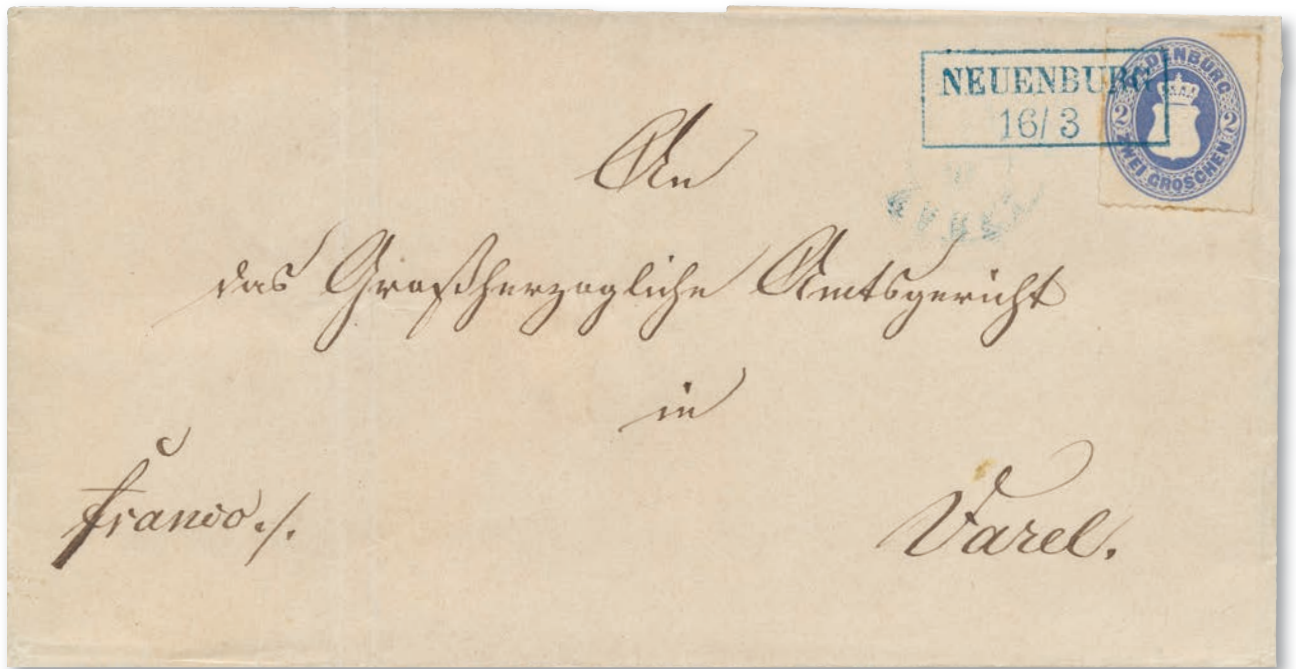 NEUENBURG
16/3
OLDENBURG
2 2
ZWEI GROSCHEN
An
das Großherzogliche Amtsgericht
in
franco./.
Varel.